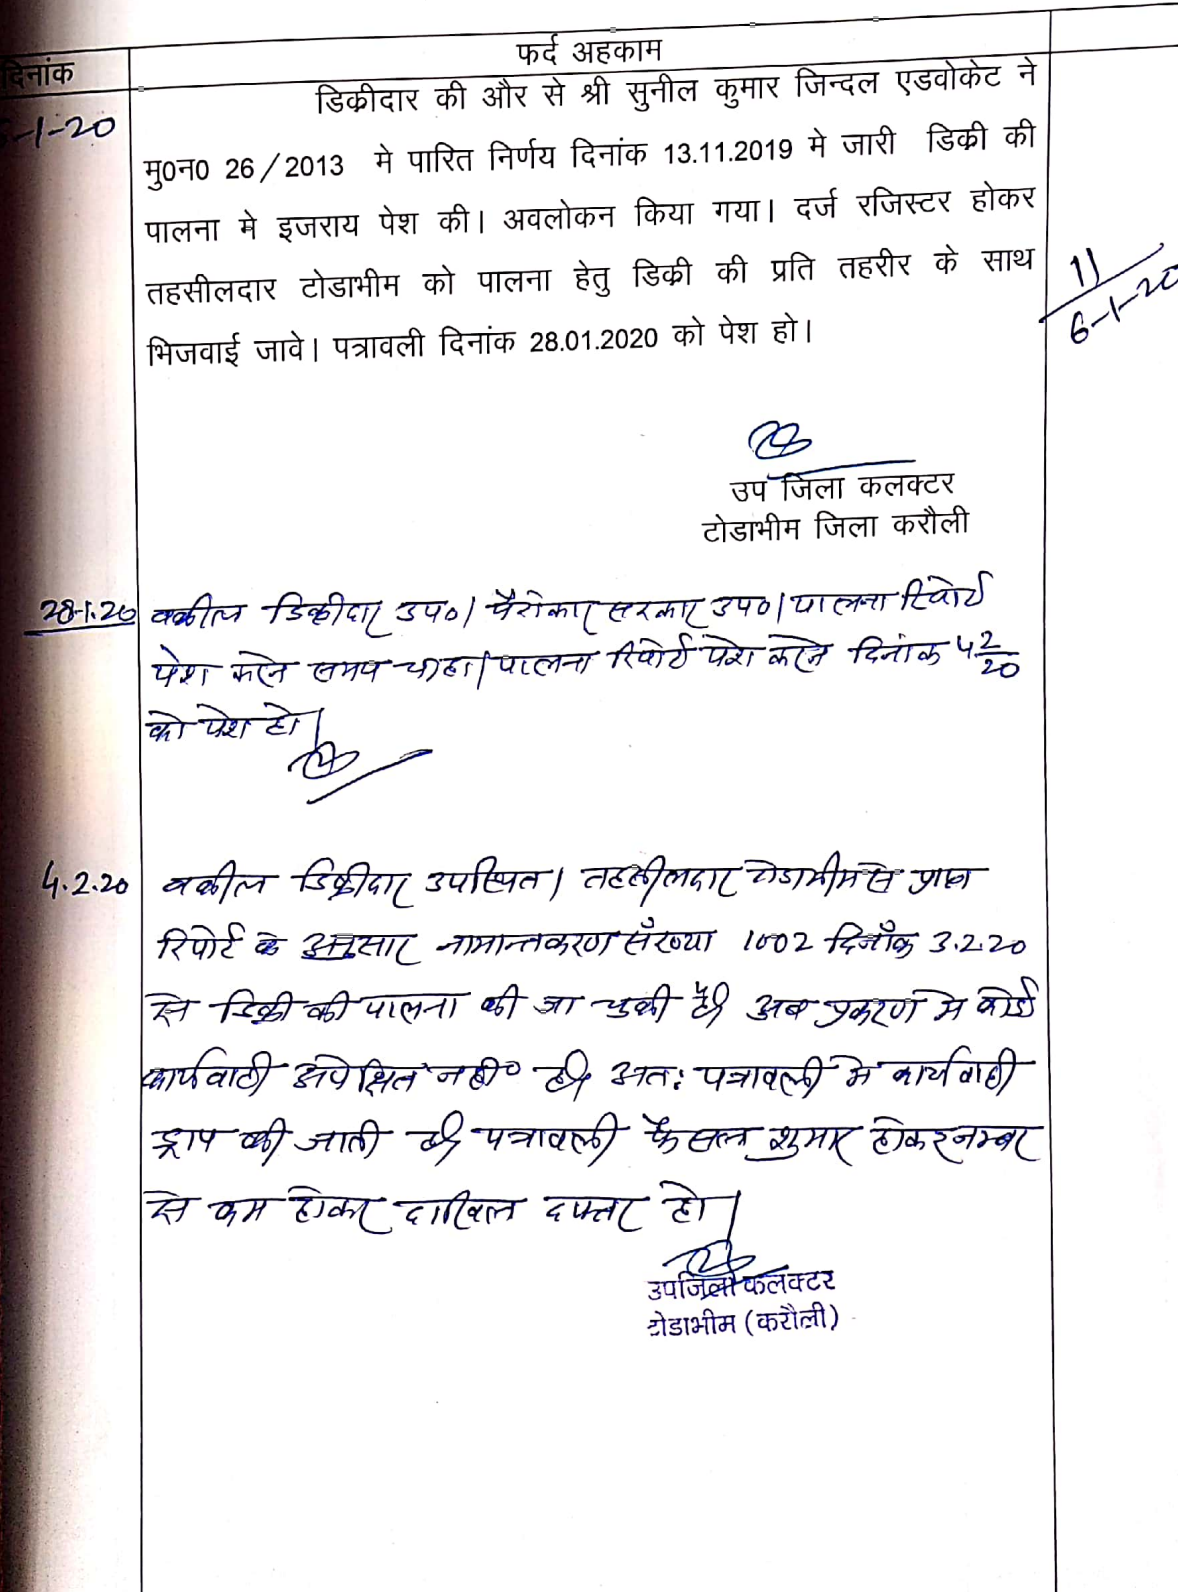 दिनांक
फर्द अहकाम
-1-20
डिक्रीदार की और से श्री सुनील कुमार जिन्दल एडवोकेट ने
मु0न0 26/2013 मे पारित निर्णय दिनांक 13.11.2019 मे जारी डिक्री की
पालना मे इजराय पेश की। अवलोकन किया गया। दर्ज रजिस्टर होकर
तहसीलदार टोडाभीम को पालना हेतु डिक्री की प्रति तहरीर के साथ
भिजवाई जावे। पत्रावली दिनांक 28.01.2020 को पेश हो।
11
6-1-20
उप जिला कलक्टर
टोडाभीम जिला करौली
28-1.20 वकील डिक्रीदार उप०। पैरोकार सरकार उप०। पालना रिपोर्ट
पेश करने समय चाहा। पालना रिपोर्ट पेश करने दिनांक 4 2/20
को पेश हो।
4.2.20 वकील डिक्रीदार उपस्थित। तहसीलदार टोडाभीम से प्राप्त
रिपोर्ट के अनुसार नामान्तकरण सँख्या 1002 दिनाँक 3.2.20
से डिक्री की पालना की जा चुकी है। अब प्रकरण मे कोई
कार्यवाही अपेक्षित नही है। अत: पत्रावली मे कार्यवाही
ड्राप की जाती है। पत्रावली फैसल शुमार होकर नम्बर
से कम होकर दाखिल दफ्तर हो।
उपजिला कलक्टर
टोडाभीम (करौली)